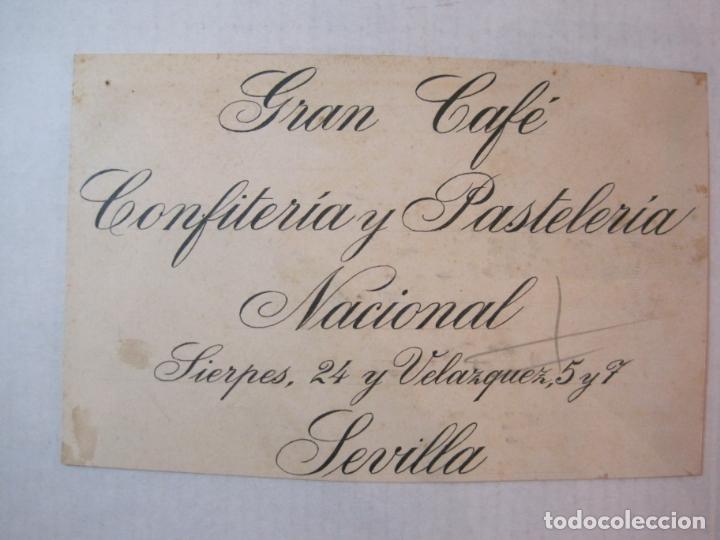 Gran Café
Confitería y Pastelería
Nacional
Sierpes, 24 y Velazquez, 5 y 7
Sevilla
todocoleccion.net